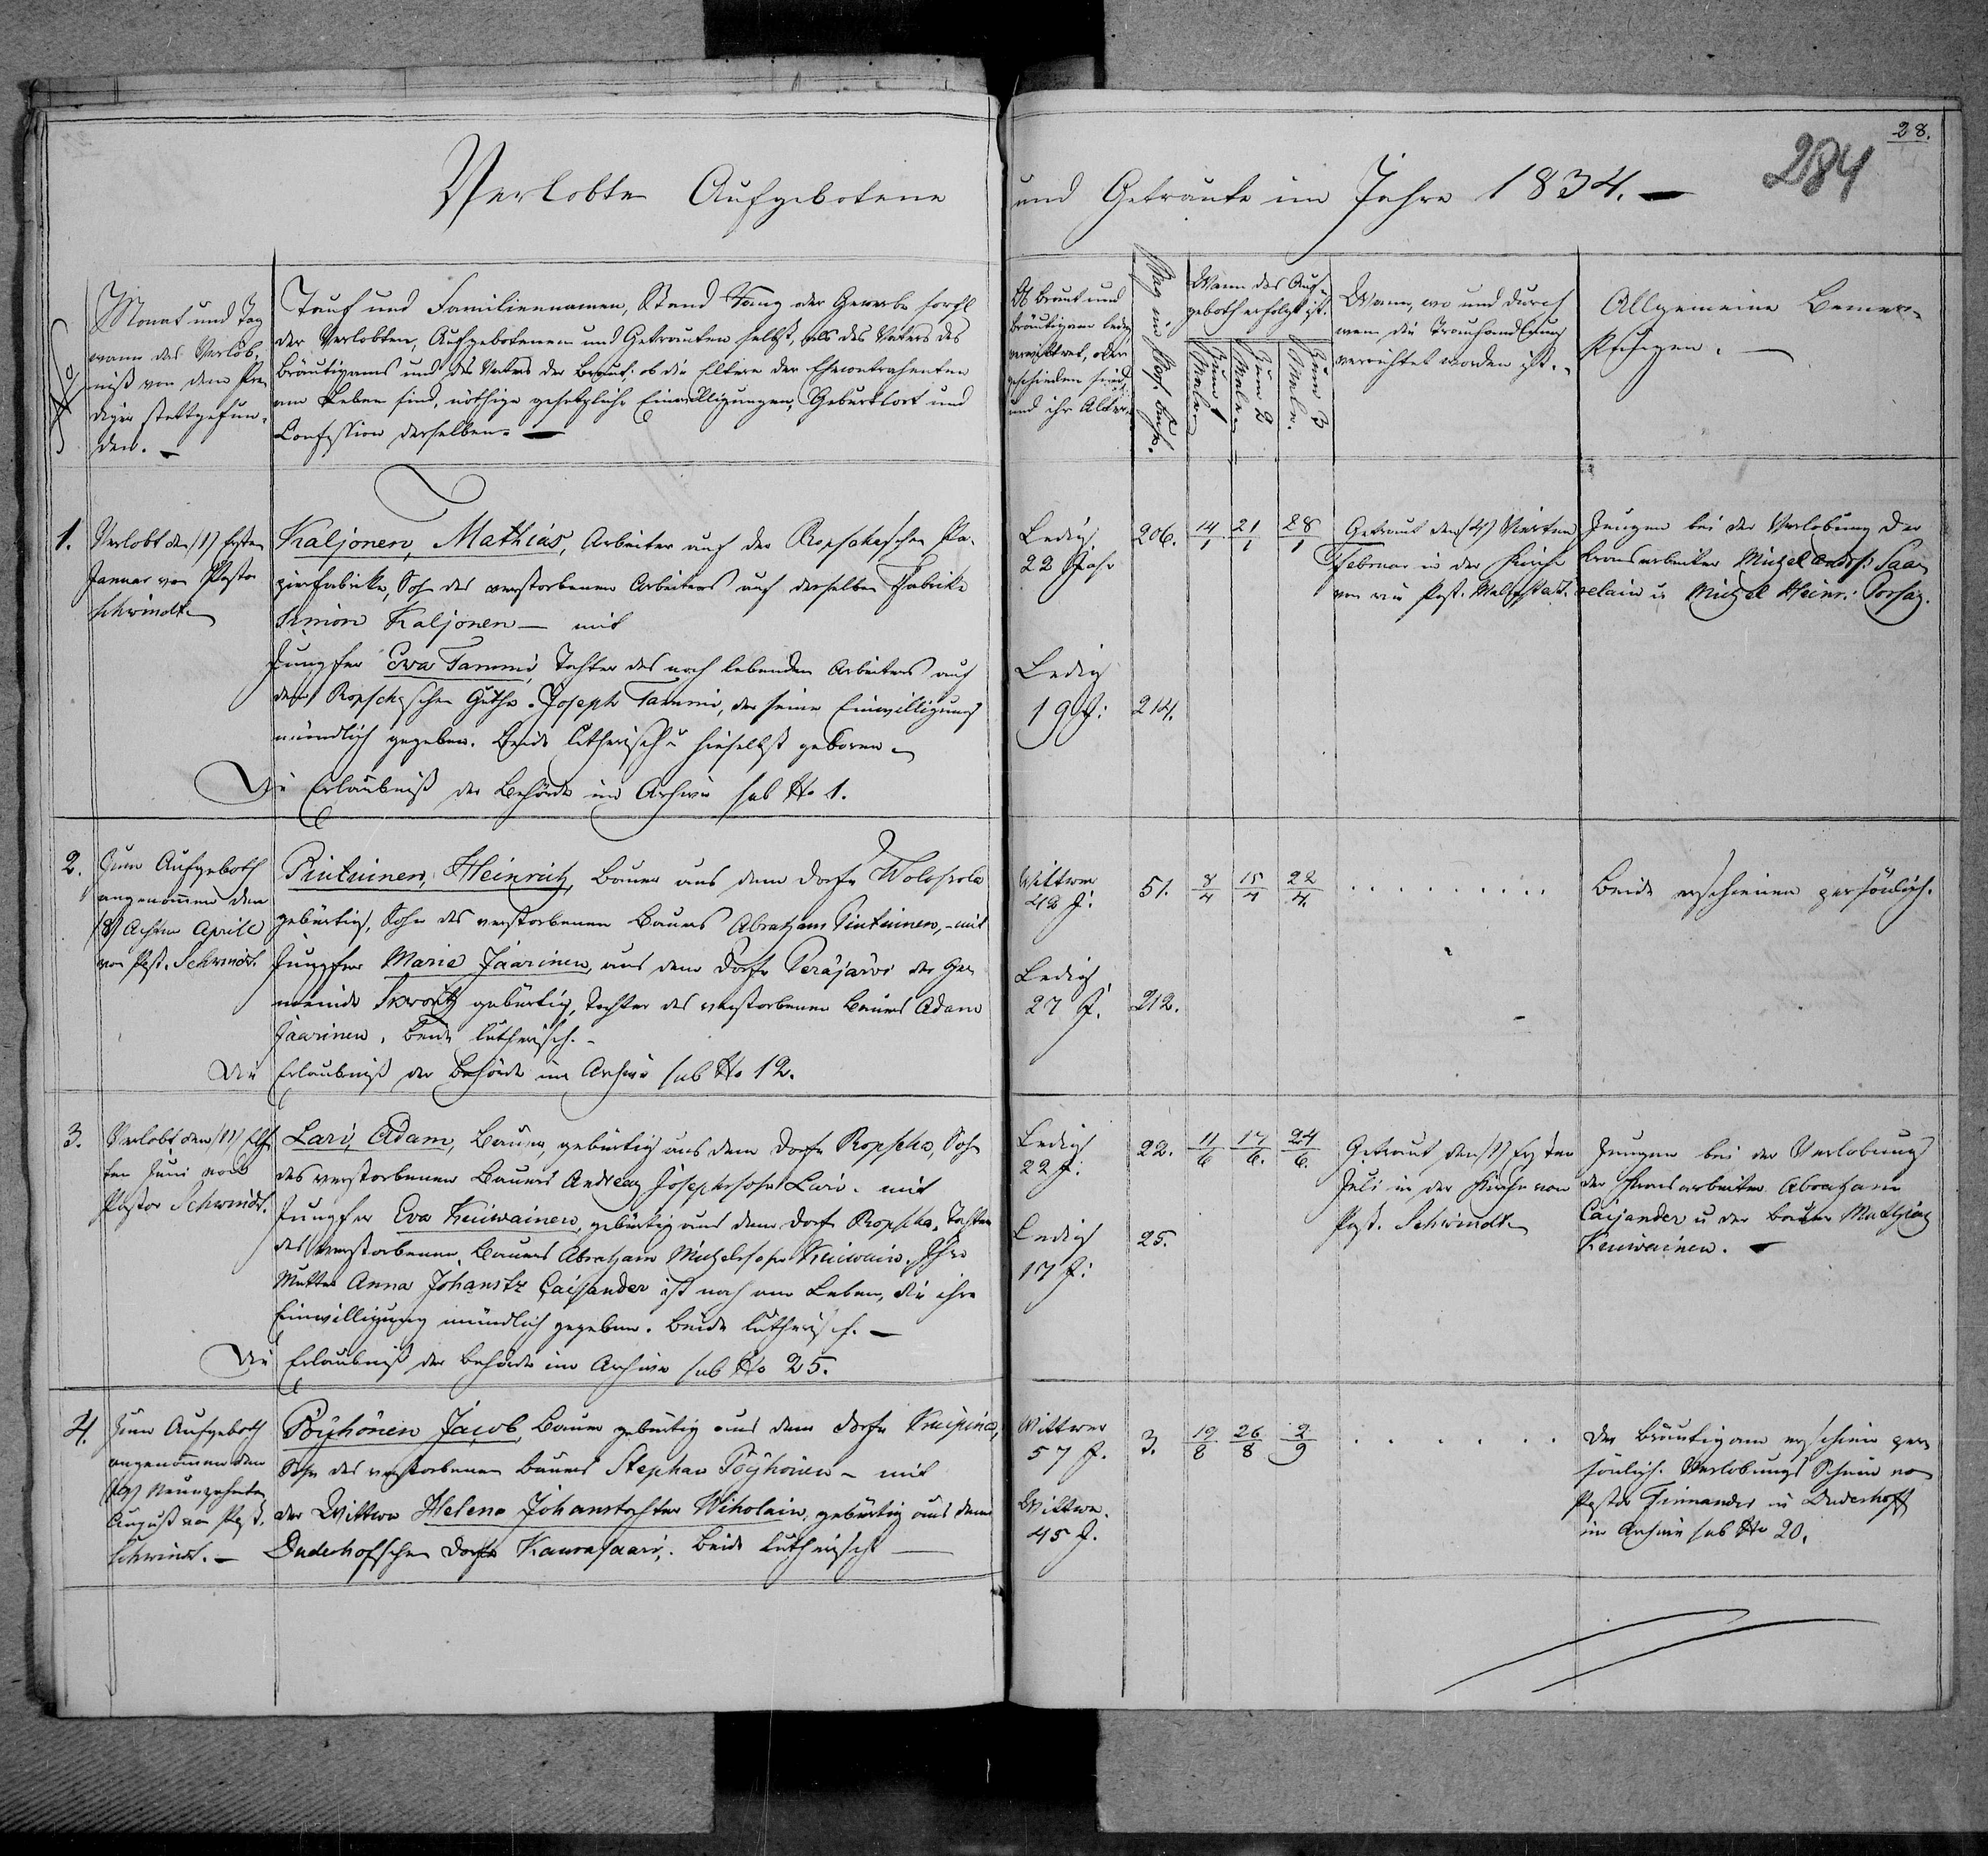 28.
284
Verlobte Aufgebotene und Getraute im Jahre 1834. —
No
Monat und Tag
wann das Verlöb-
niß von dem Pre-
diger stattgefun-
den. —
Tauf und Familiennamen, Stand Rang oder Gewerbe sowohl
der Verlobten, Aufgebotenen und Getrauten selbst, als des Vaters des
Bräutigams und des Vaters der Braut; ob die Eltern der Ehecontrahenten
am Leben sind, nöthige gesetzliche Einwilligungen, Geburtsort und
Confession derselben. —
Ob Braut und
Bräutigam ledig
verwittwet, oder
geschieden sind,
und ihr Alter.
Pag. im Buche.
Wann das Auf-
geboth erfolgt ist.
Zum 1 Male.
Zum 2 Male.
Zum 3 Male.
Wann, wo und durch
wem die Trauhandlung
verrichtet worden ist.
Allgemeine Bemer-
kungen. —
1.
Verlobt den (1) Ersten
Januar von Pastor
Schwindt
Kaljonen, Mathias, Arbeiter auf der Ropschaschen Pa-
pierfabrike, Sohn des verstorbenen Arbeiters auf derselben Fabrike
Simon Kaljonen — mit
Jungfer Eva Tammi, Tochter des noch lebenden Arbeiters auf
dem Ropschaschen Guthe Joseph Tammi, der seine Einwilligung
mündlich gegeben. Beide lutherisch u hieselbst geboren
Die Erlaubniß der Behörde im Archiv sub No 1.
Ledig
22 Jahr
206.
14/1
21/1
28/1
Getraut den (4) Vierten
Februar in der Kirche
von Past.
Zeugen bei der Verlobung der
Kronsarbeiter Michel Saa-
relain u Michel Heinr:
Ledig
19 J:
214.
2.
Zum Aufgeboth
angenommen den
(8) Achten Aprill
von Past. Schwindt.
Pintuinen, Heinrich, Bauer aus dem Dorfe
gebürtig, Sohn des verstorbenen Bauers Abraham Pintuinen, - mit
Jungfer Maria Jäärinen, aus dem Dorfe Peräjärvi der Ge-
meinde Skworitz gebürtig, Tochter des verstorbenen Bauers Adam
Jäärinen. Beide lutherisch. -
Die Erlaubniß der Behörde im Archiv sub No 12.
Wittwer
42 J:
51.
8/4
15/4
22/4.
. . . . . . . . .
Beide erschienen persönlich.
Ledig
27 J.
212.
3.
Verlobt den (11) Elf-
ten Juni von
Pastor Schwindt.
Lari, Adam, Bauer, gebürtig aus dem Dorfe Ropscha, Sohn
des verstorbenen Bauers Andreas Josephssohn Lari. mit
Jungfer Eva Kuiwainen, gebürtig aus dem Dorfe Ropscha, Tochter
des verstorbenen Bauers Abraham Michelssohn Kuiwain. Ihre
Mutter Anna Johanstr Caijander ist noch am Leben, die ihre
Einwilligung mündlich gegeben. Beide lutherisch. —
Die Erlaubniß der Behörde im Archiv sub No 25.
Ledig
22 J:
22.
11/6
17/6.
24/6.
Getraut den (1) Ersten
Juli in der Kirche von
Past. Schwindt
Zeugen bei der Verlobung
der Kronsarbeiter Abraham
Caijander u der Bauer Mathias
Kuiwainen. —
Ledig
17 J:
25.
4.
Zum Aufgeboth
angenommen den
(19) Neunzehnten
August von Past.
Schwindt. —
Pöyhönen Jacob, Bauer gebürtig aus dem Dorfe Kuipina,
Sohn des verstorbenen Bauers Stephan Pöyhönen — mit
der Wittwe Helena Johanstochter Wiholain, gebürtig aus dem
Duderhofschen Dorfe Kaurasaari. Beide lutherisch —
Wittwer
57 J.
3.
19/8
26/8
2/9
. . . . . .
Der Bräutigam erschien per-
sönlich. Verlobungs Schein von
Pastor Finnander in Duderhoff
im Archiv sub No 20.
Wittwe.
45 J.